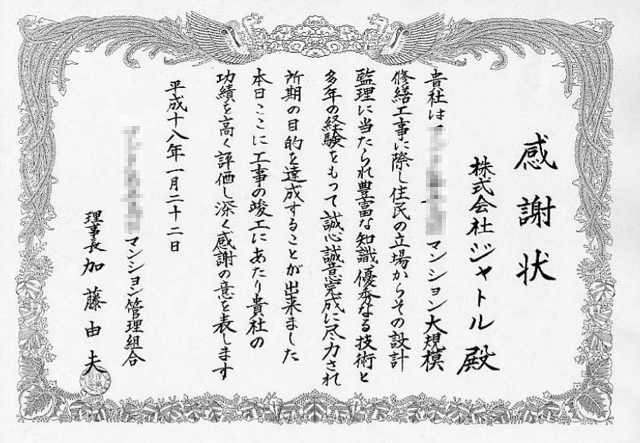 感謝状
株式会社ジャトル殿
貴社は
マンション大規模
修繕工事に際し住民の立場からその設計
監理に当たられ豊富な知識優秀なる技術と
多年の経験をもって誠心誠意完成に尽力され
所期の目的を達成することが出来ました
本日ここに工事の竣工にあたり貴社の
功績を高く評価し深く感謝の意を表します
平成十八年一月二十二日
マンション管理組合
理事長 加藤由夫